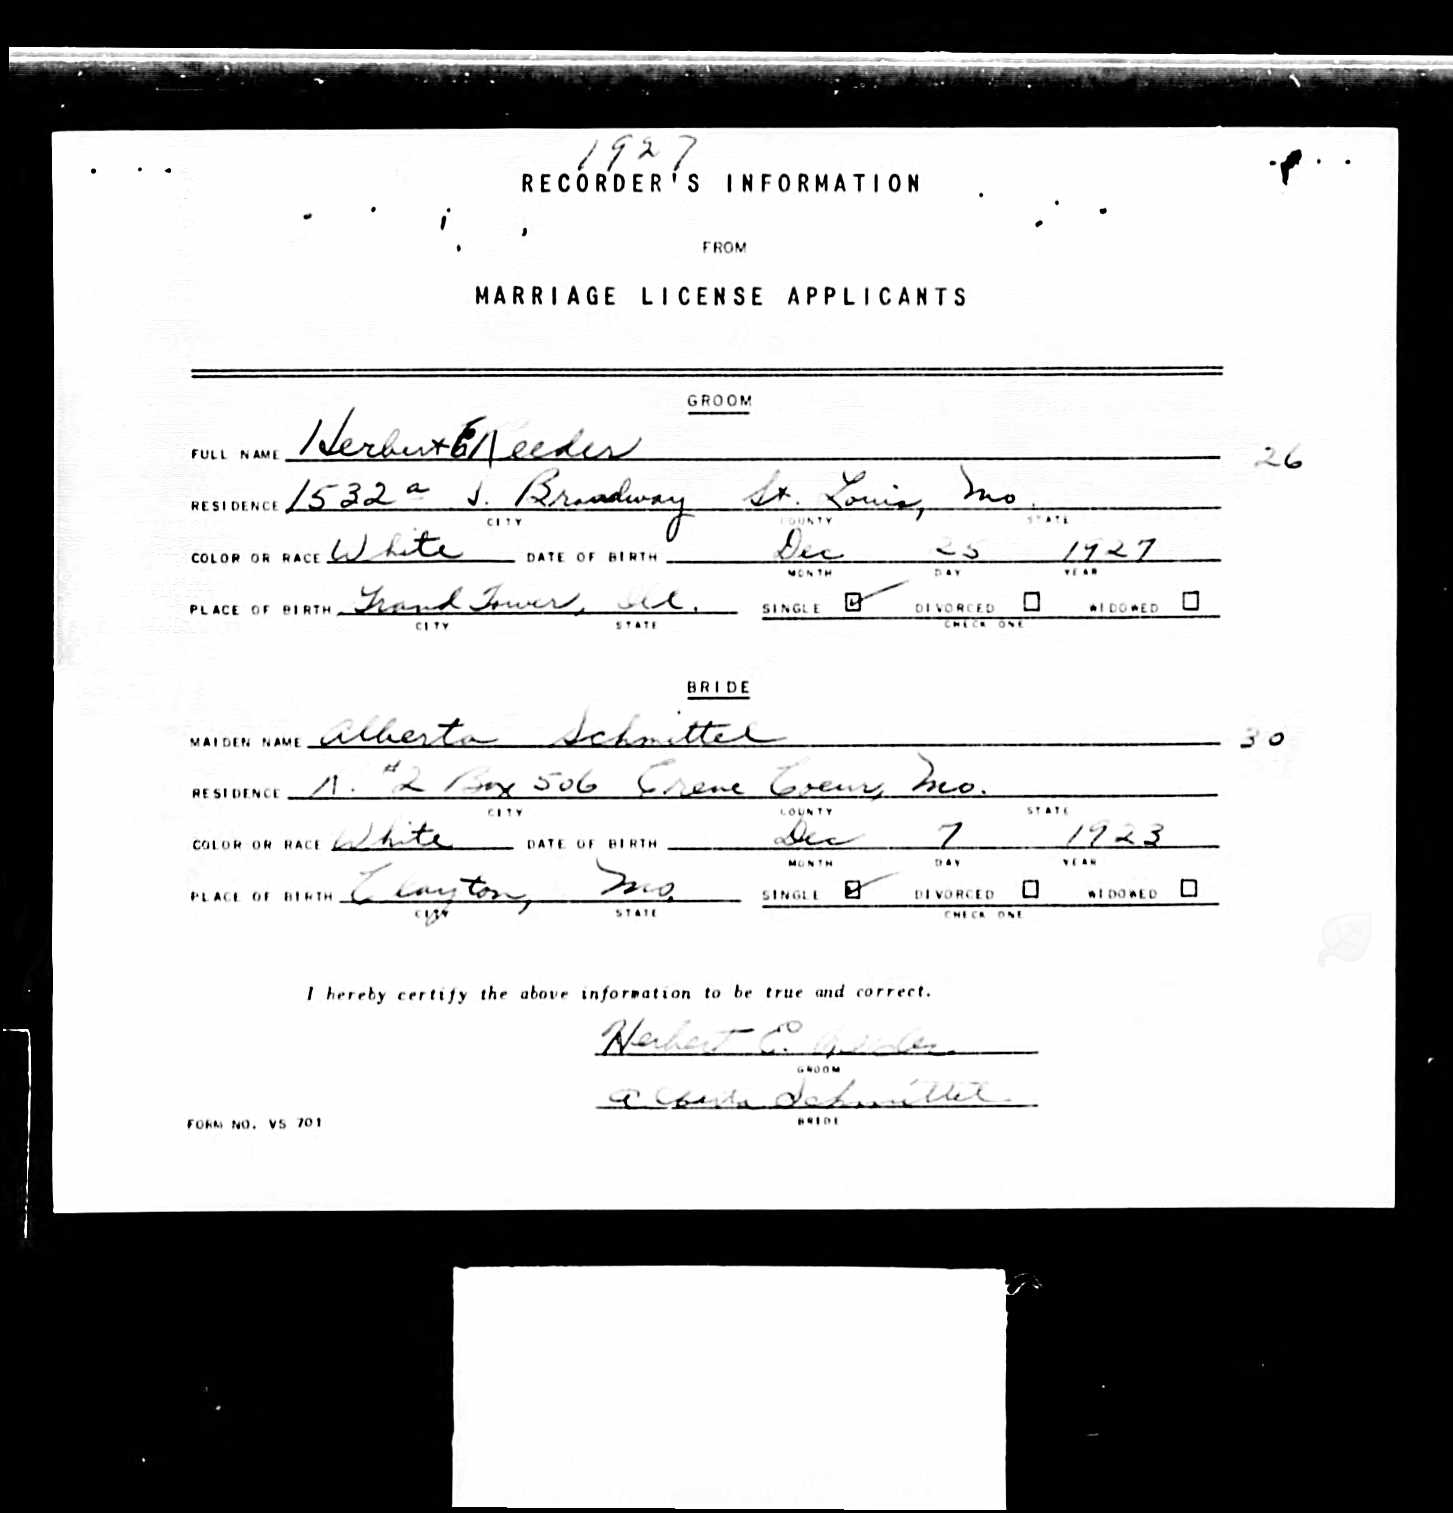 1927
RECORDER'S INFORMATION
FROM
MARRIAGE LICENSE APPLICANTS
GROOM
FULL NAME Herbert E Reeder 26
RESIDENCE 1532a S. Broadway St. Louis, Mo.
CITY COUNTY STATE
COLOR OR RACE White DATE OF BIRTH Dec 25 1927
MONTH DAY YEAR
PLACE OF BIRTH Grand Tower, Ill. SINGLE DIVORCED WIDOWED
CITY STATE CHECK ONE
BRIDE
MAIDEN NAME Alberta Schmittel 30
RESIDENCE R. #2 Box 506 Creve Coeur, Mo.
CITY COUNTY STATE
COLOR OR RACE White DATE OF BIRTH Dec 7 1923
MONTH DAY YEAR
PLACE OF BIRTH Clayton, Mo. SINGLE DIVORCED WIDOWED
CITY STATE CHECK ONE
I hereby certify the above information to be true and correct.
Herbert E. Reeder
GROOM
Alberta Schmittel
BRIDE
FORM NO. VS 701